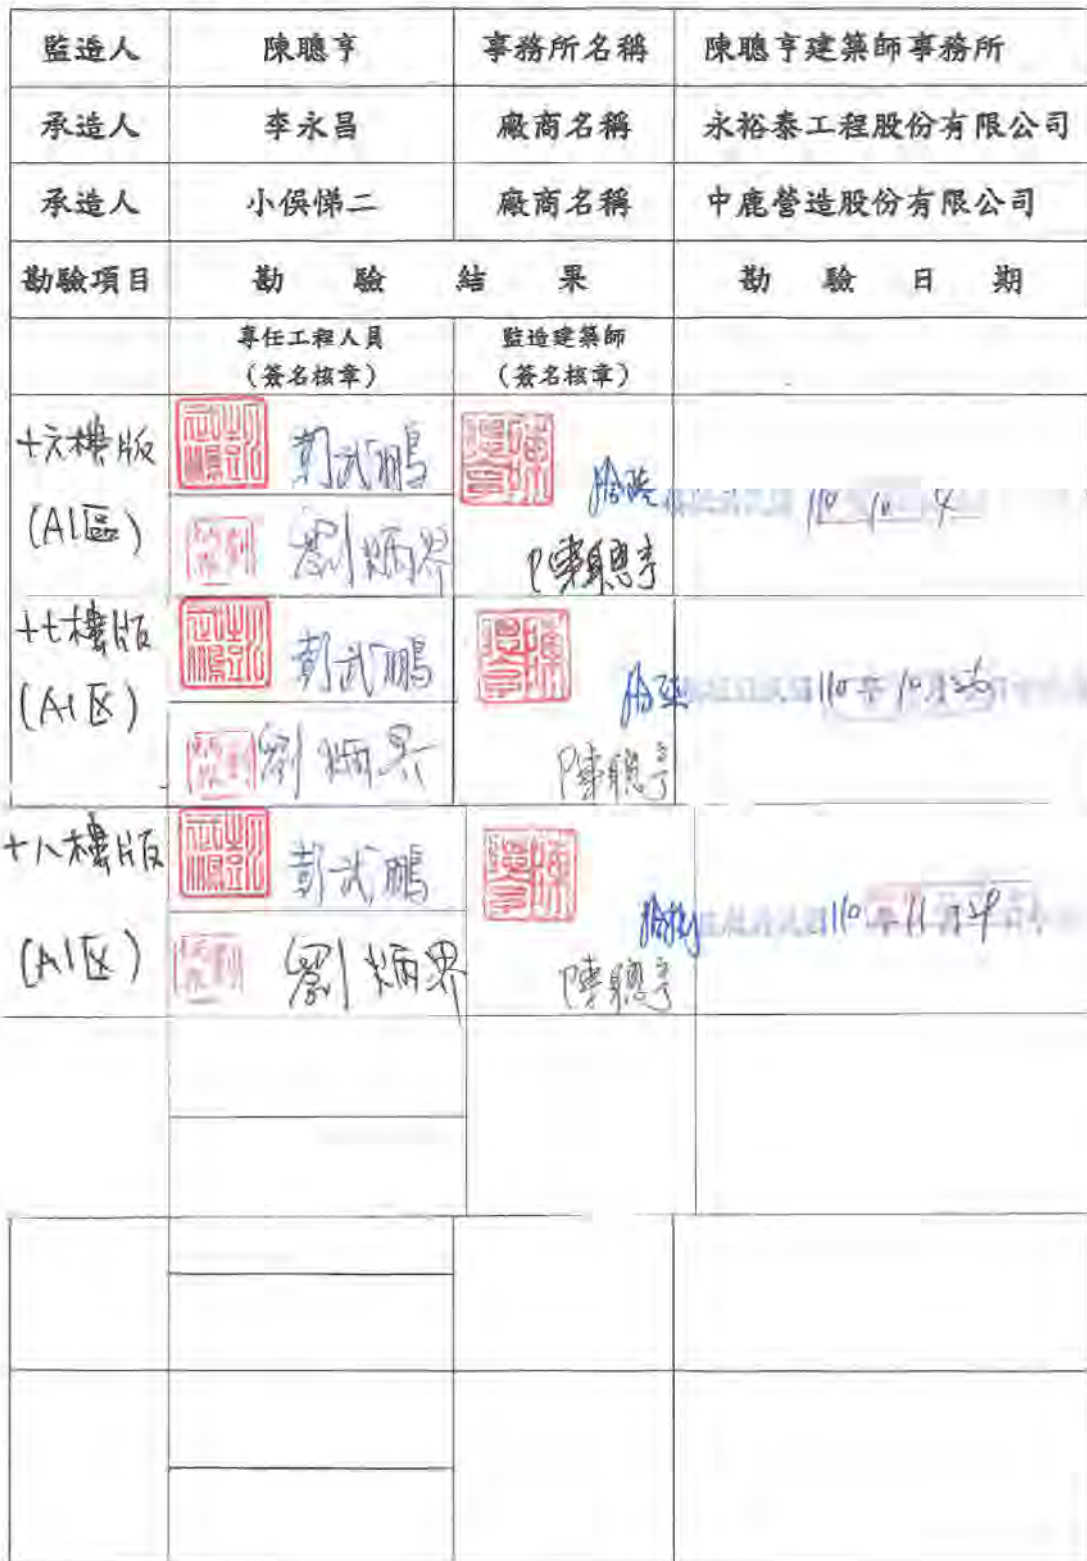 監造人 陳聰亨 事務所名稱 陳聰亨建築師事務所
承造人 李永昌 廠商名稱 永裕泰工程股份有限公司
承造人 小俁悌二 廠商名稱 中鹿營造股份有限公司
勘驗項目 勘 驗 結 果 勘 驗 日 期
專任工程人員 監造建築師
(簽名核章) (簽名核章)
十六樓版 彭武鵬
(A1區) 劉炳界 陳聰亨 110 10 4
十七樓版 彭武鵬
(A1区) 劉炳界 陳聰亨 110年10月26
十八樓版 彭武鵬
(A1区) 劉炳界 陳聰亨 110年11月29